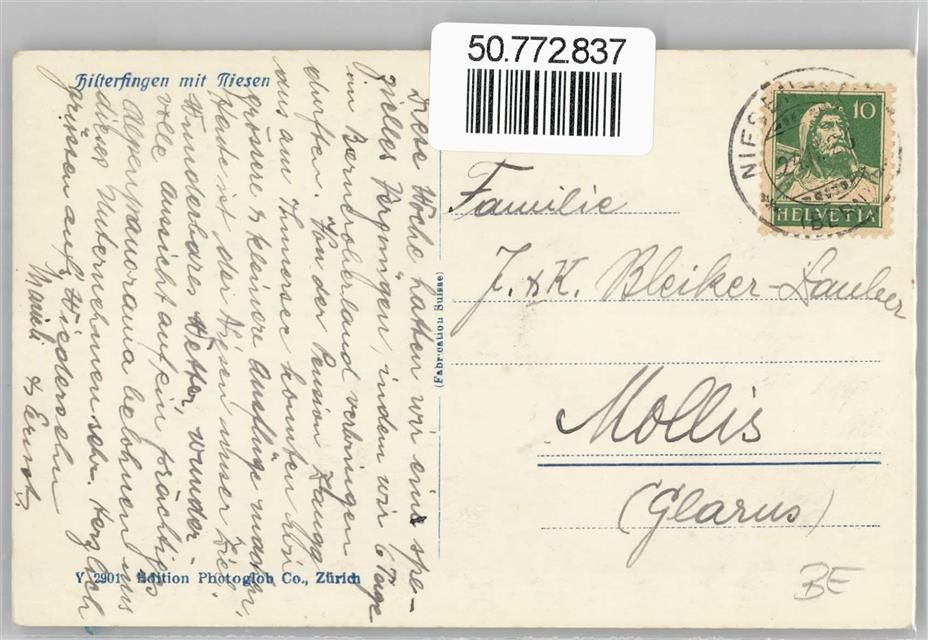 50.772.837
Hilterfingen mit Niesen
Diese Woche hatten wir eine spe-
zielles Vergnügen, indem wir 6 Tage
im Berneroberland verbringen
durften. Von der Pension
aus am Thunersee konnten wir
grössere & kleinere Ausflüge machen,
Heute ist der Niesen unser Ziel.
Wunderbares Wetter, wunder-
volle Aussicht auf ein prächtiges
Alpenpanorama belohnen uns
dieses Unternehmen sehr. Herzlich
grüssen auf Wiedersehn
& Ernst
(Fabrication Suisse)
Y 2901 Edition Photoglob Co., Zürich
10
HELVETIA
Familie
J. & K. Bleiker-Lauber
Mollis
(Glarus)
BE